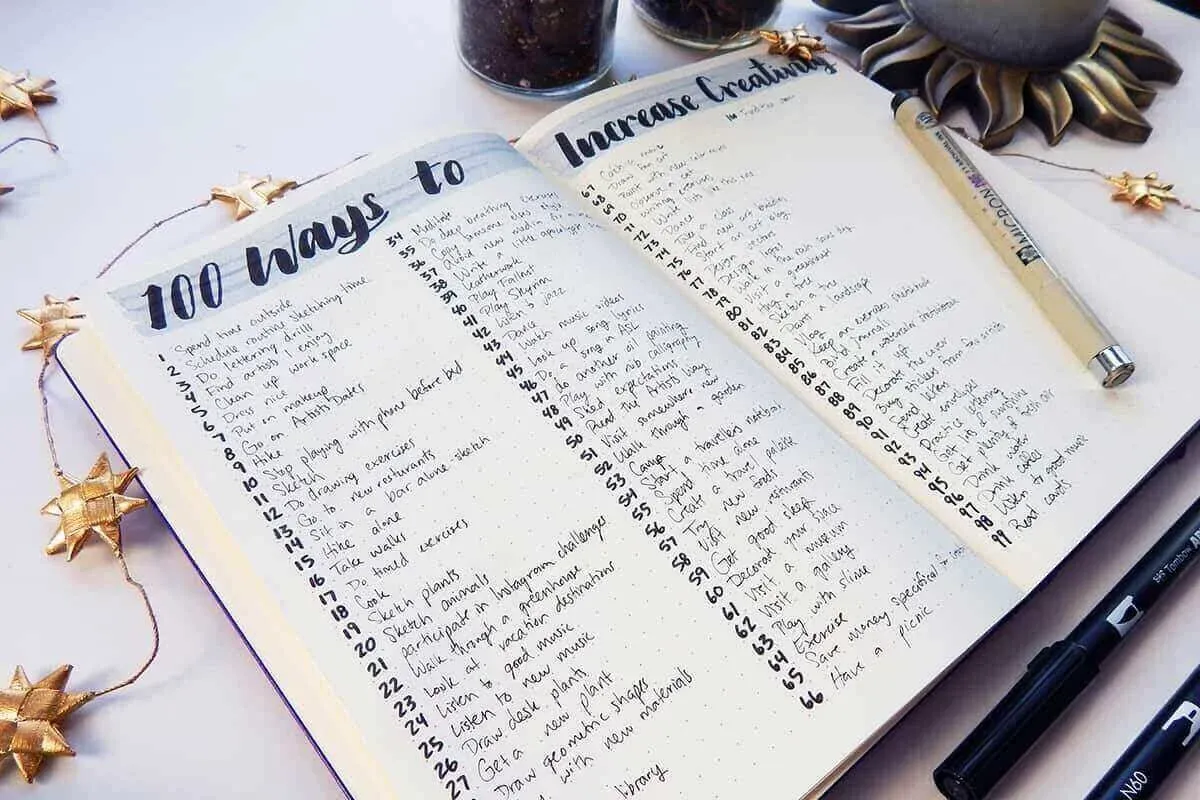 100 Ways to
1 Spend time outside
2 Schedule routine sketching time
3 Do lettering drills
4 Find artists I enjoy
5 Clean up work space
6 Dress nice
7 Put on makeup
8 Go on Artists Dates
9 Hike
10 Stop playing with phone before bed
11 Sketch
12 Do drawing exercises
13 Go to new resturants
14 Sit in a bar alone + sketch
15 Hike alone
16 Take walks
17 Do timed exercises
18 Cook
19 Sketch plants
20 Sketch animals
21 participate in Instagram challenges
22 Walk through a greenhouse
23 Look at vacation destinations
24 Listen to good music
25 Listen to new music
26 Draw desk plants
27 Get a new plant
Draw geometric shapes
with new materials
library
34 Meditate
35 Do deep breathing exercises
36 Copy someone else's style
37 Avoid new media for
38 Write a little
39 Leatherwork
40 Play Fallout
41 Play Skyrim
42 Listen to jazz
43 Dance
44 Watch music videos
45 Look up song lyrics
46 Do a song in ASL
47 do another oil painting
48 Play with nib calligraphy
49 Shed expectations
50 Read the Artists Way
51 Visit somewhere new
52 Walk through a garden
53 Camp
54 Start a travelers notebook
55 Spend time alone
56 Create a travel palate
57 Try new foods
58 Visit new resturants
59 Get good sleep
60 Decorate your space
61 Visit a museum
62 Visit a gallery
63 Play with slime
64 Exercise
65 Save money specifical for
66 Have a picnic
Increase Creativity
67 Catch a movie
68 Draw fan art
69 Paint with new color mixes
70 in a cafe
71 writing exercises
72 Write lists like this one
73 Dance
74 Take a class
75 Find new art books
76 Start an art blog
77 Design vectors
78 Design a logo
79 Walk in the rain
80 Visit a greenhouse
81 Hug a tree
82 Sketch a tree
83 Paint a landscape
84 Vlog
85 Keep an everyday sketchbook
86 Bullet Journal
87 Create a
88 Fill it up
89 Decorate the cover
90 Buy stickers from
91 Send letters
92 Create envelopes
93 Practice lettering
94 Get lots of sunshine
95 Get plenty of fresh air
96 Drink water
97 Drink coffee
98 Listen to good music
99 Read cards
MICRON
Tombow
N60